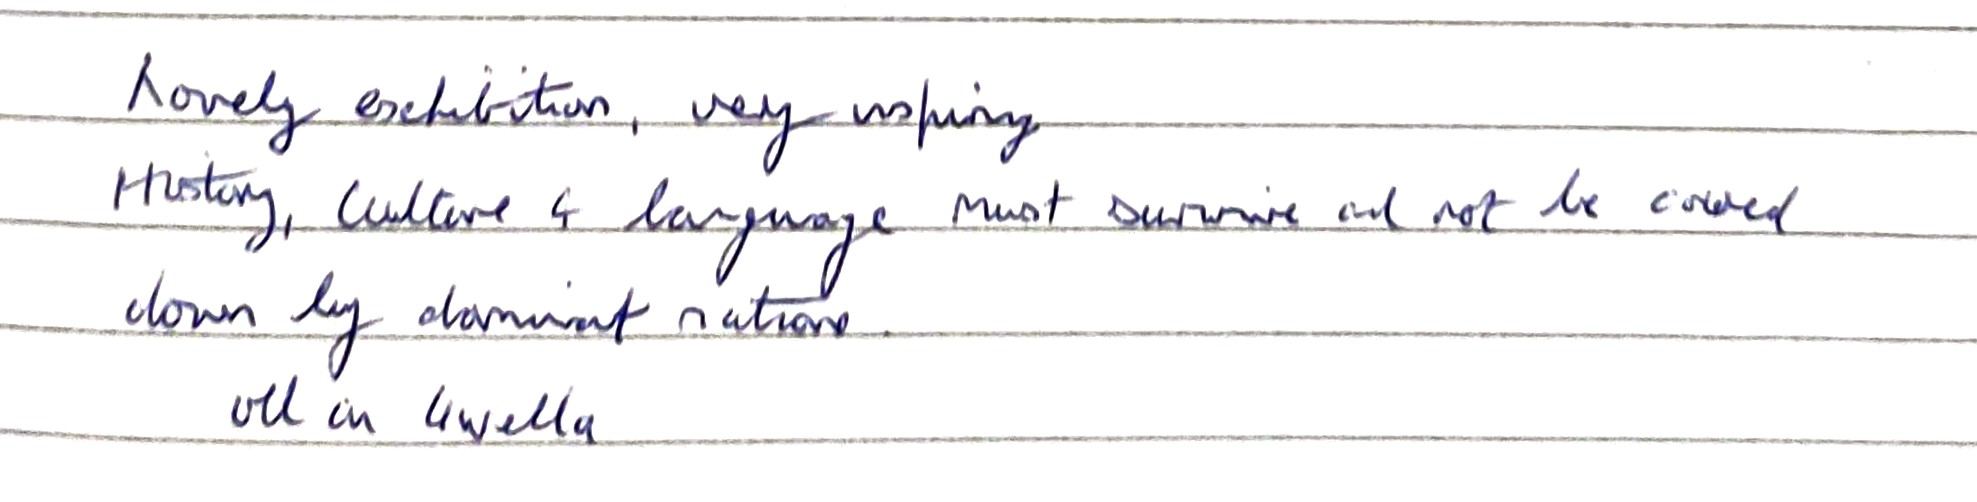 Lovely exhibition, very inspiring
History, Culture & language must survive and not be cowed
down by dominant nations.
oll an gwella